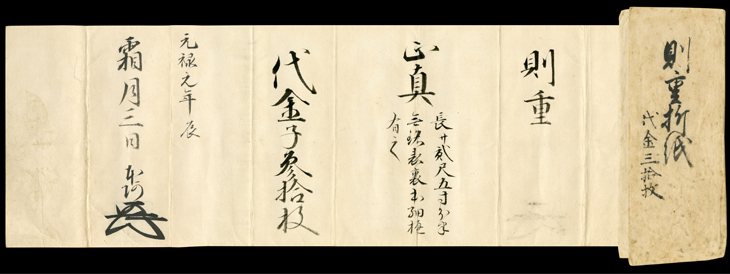 則重折紙
代金三拾枚
則重
正真
長サ貳尺五寸
無銘表裏 細樋
有之
代金子參拾枚
元禄元年辰
霜月三日 本阿